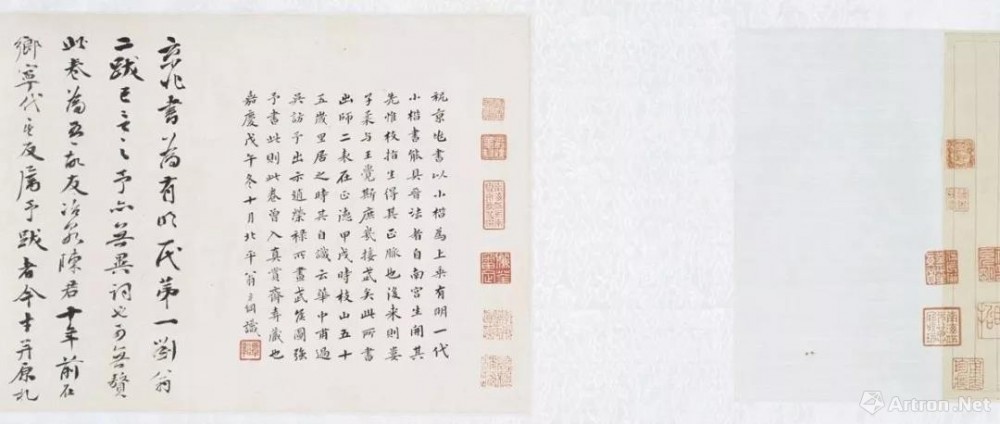 祝京兆書以小楷為上乘有明一代
小楷書能具晉法者自南宮生開其
先惟枝指生得其正脈也後來則婁
子柔與王覺斯庶幾接武矣此所書
出師二表在正德甲戌時枝山五十
五歲里居之時其自識云華中甫過
吳訪予出示趙榮祿所畫武侯圖強
予書此則此卷曾入真賞齋藏也
嘉慶戊午冬十月北平翁方綱識
京兆書為有明第一劉翁
二跋已言之予亦無異詞也可無贅
此卷為吾故友冶泉陳君十年前在
鄉寧代友屬予跋者今原札
Artron.Net